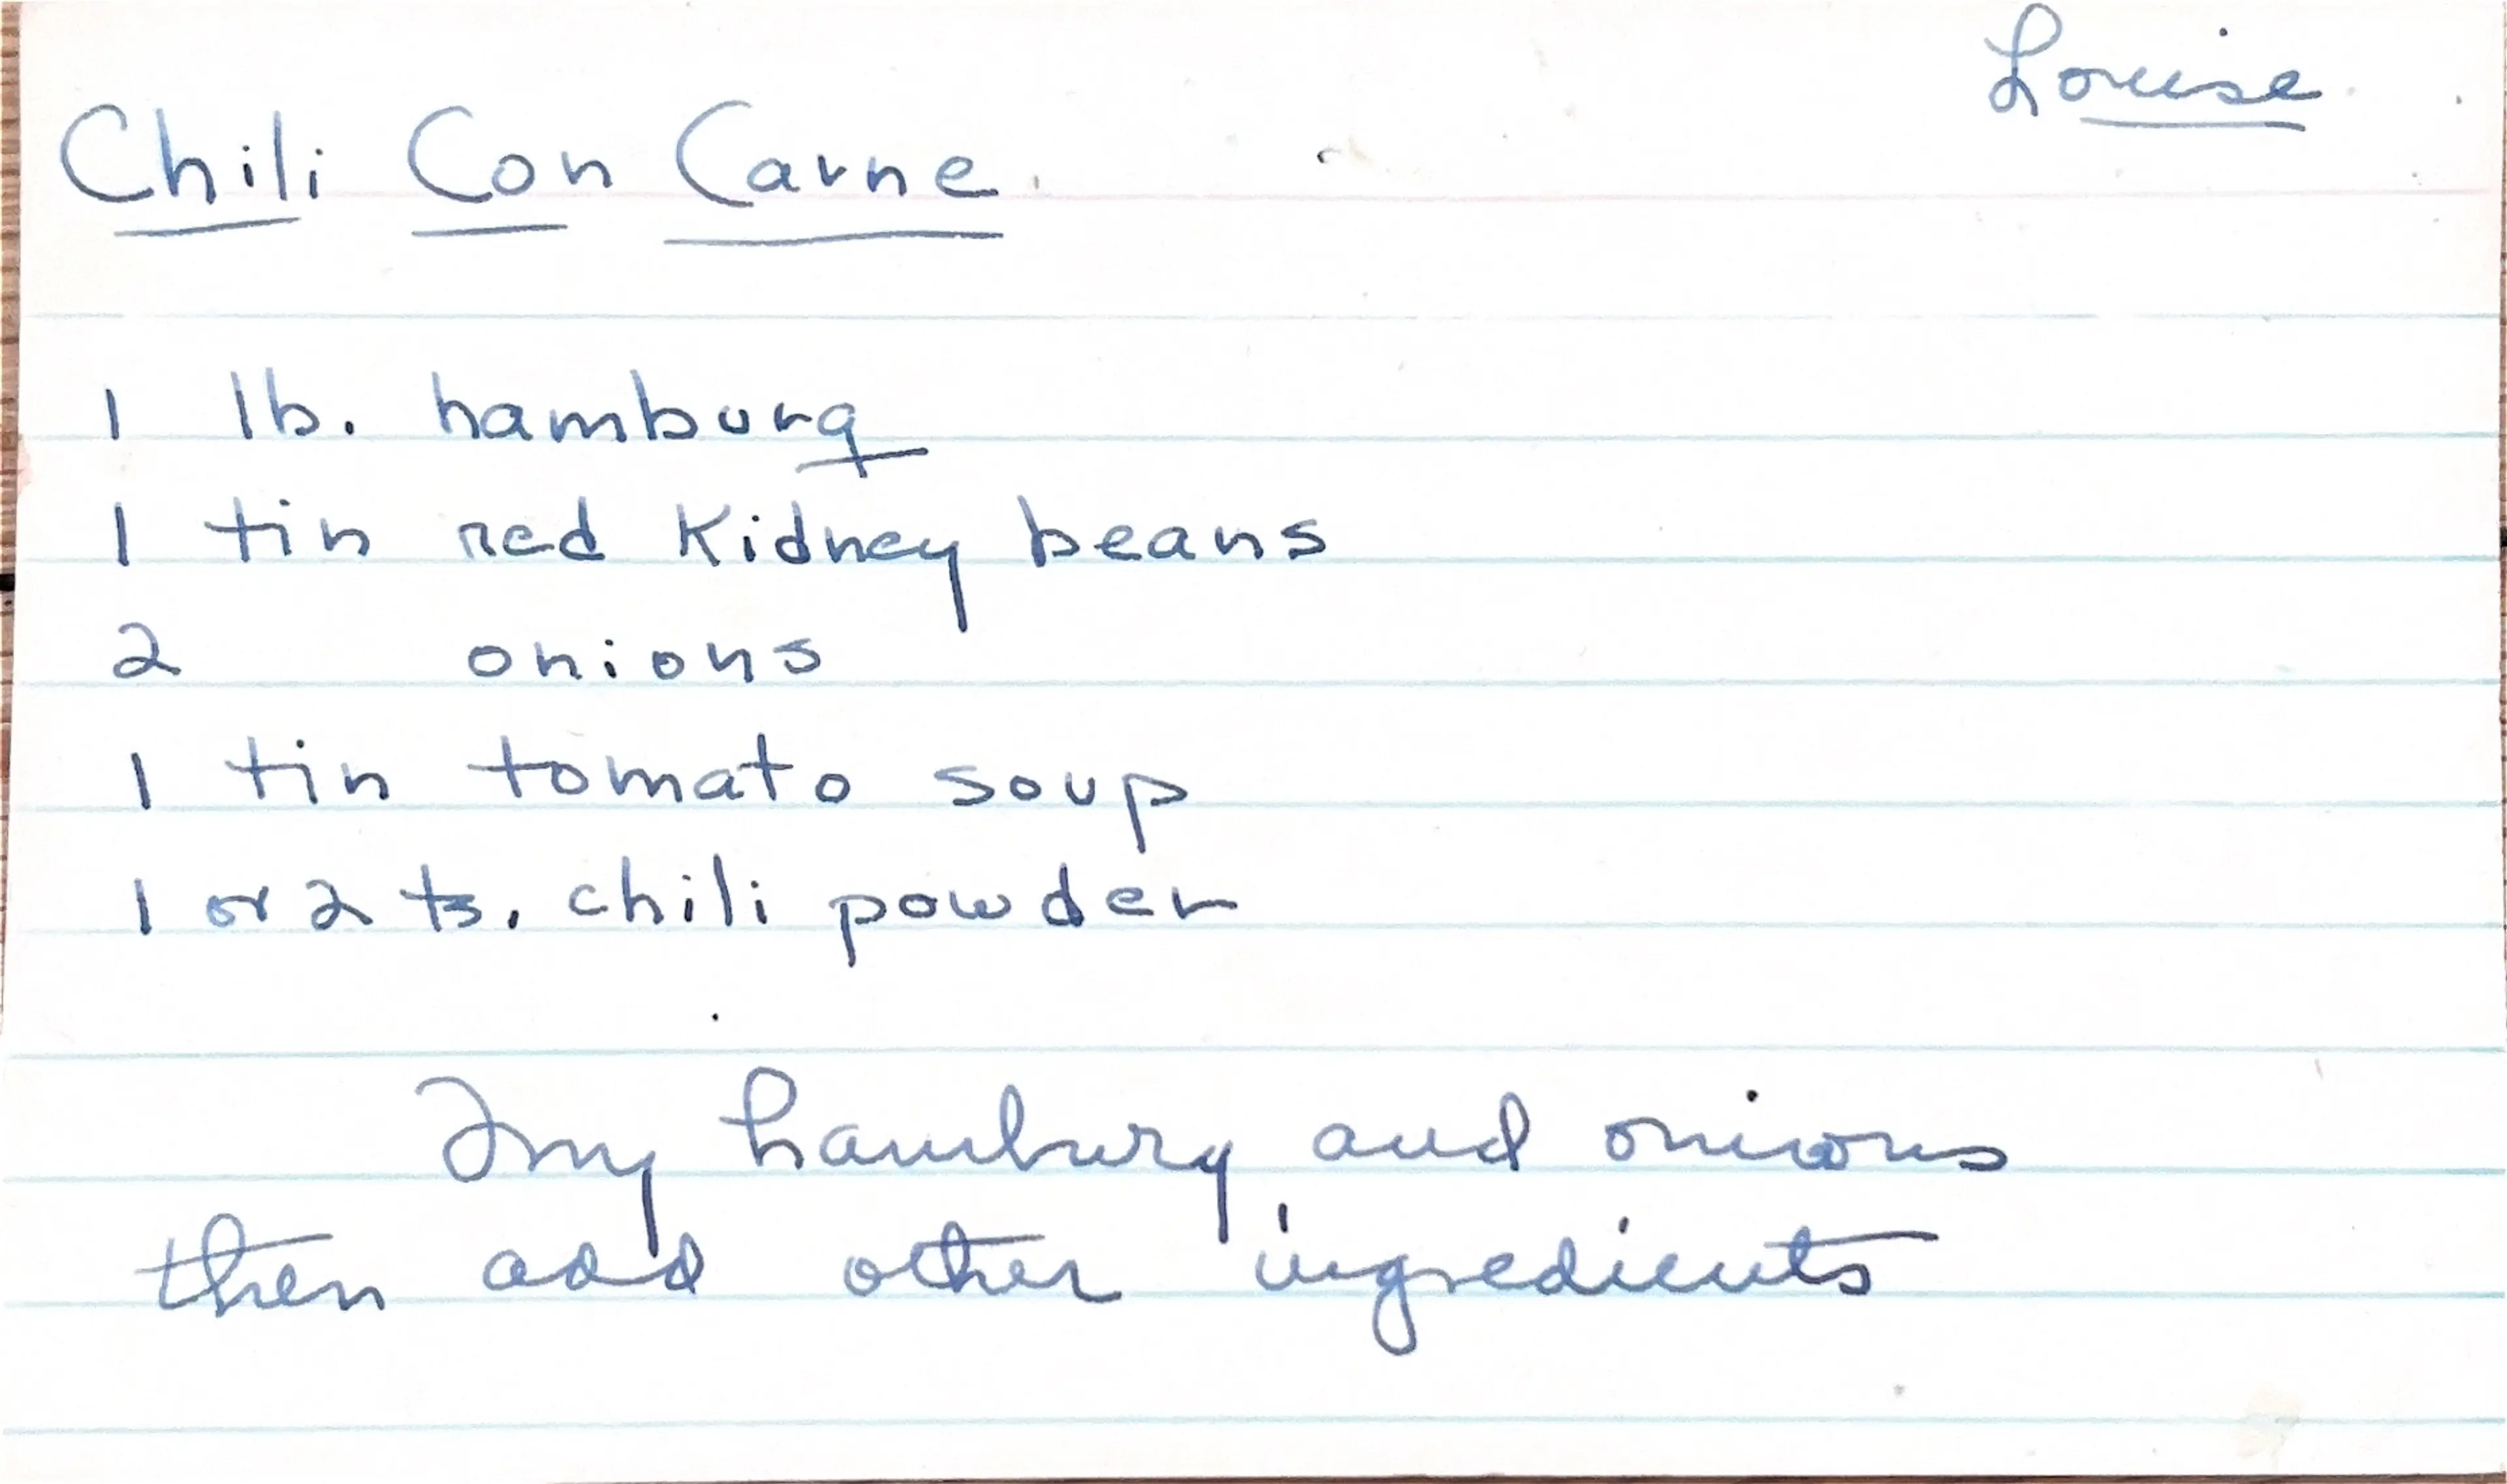 Louise
Chili Con Carne
1 lb. hamburg
1 tin red Kidney beans
2 onions
1 tin tomato soup
1 or 2 ts. chili powder
Fry hamburg and onions
then add other ingredients